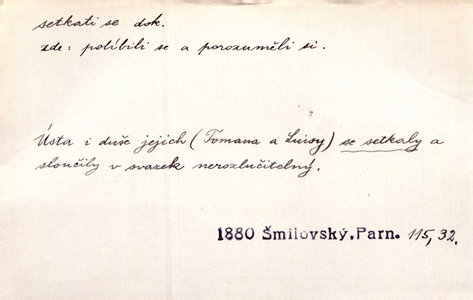 setkati se dok.
zde: políbili se a porozuměli si.
Ústa i duše jejich (Tomana a Luisy) se setkaly a
sloučily v svazek nerozlučitelný.
1880 Šmilovský, Parn. 115, 32.